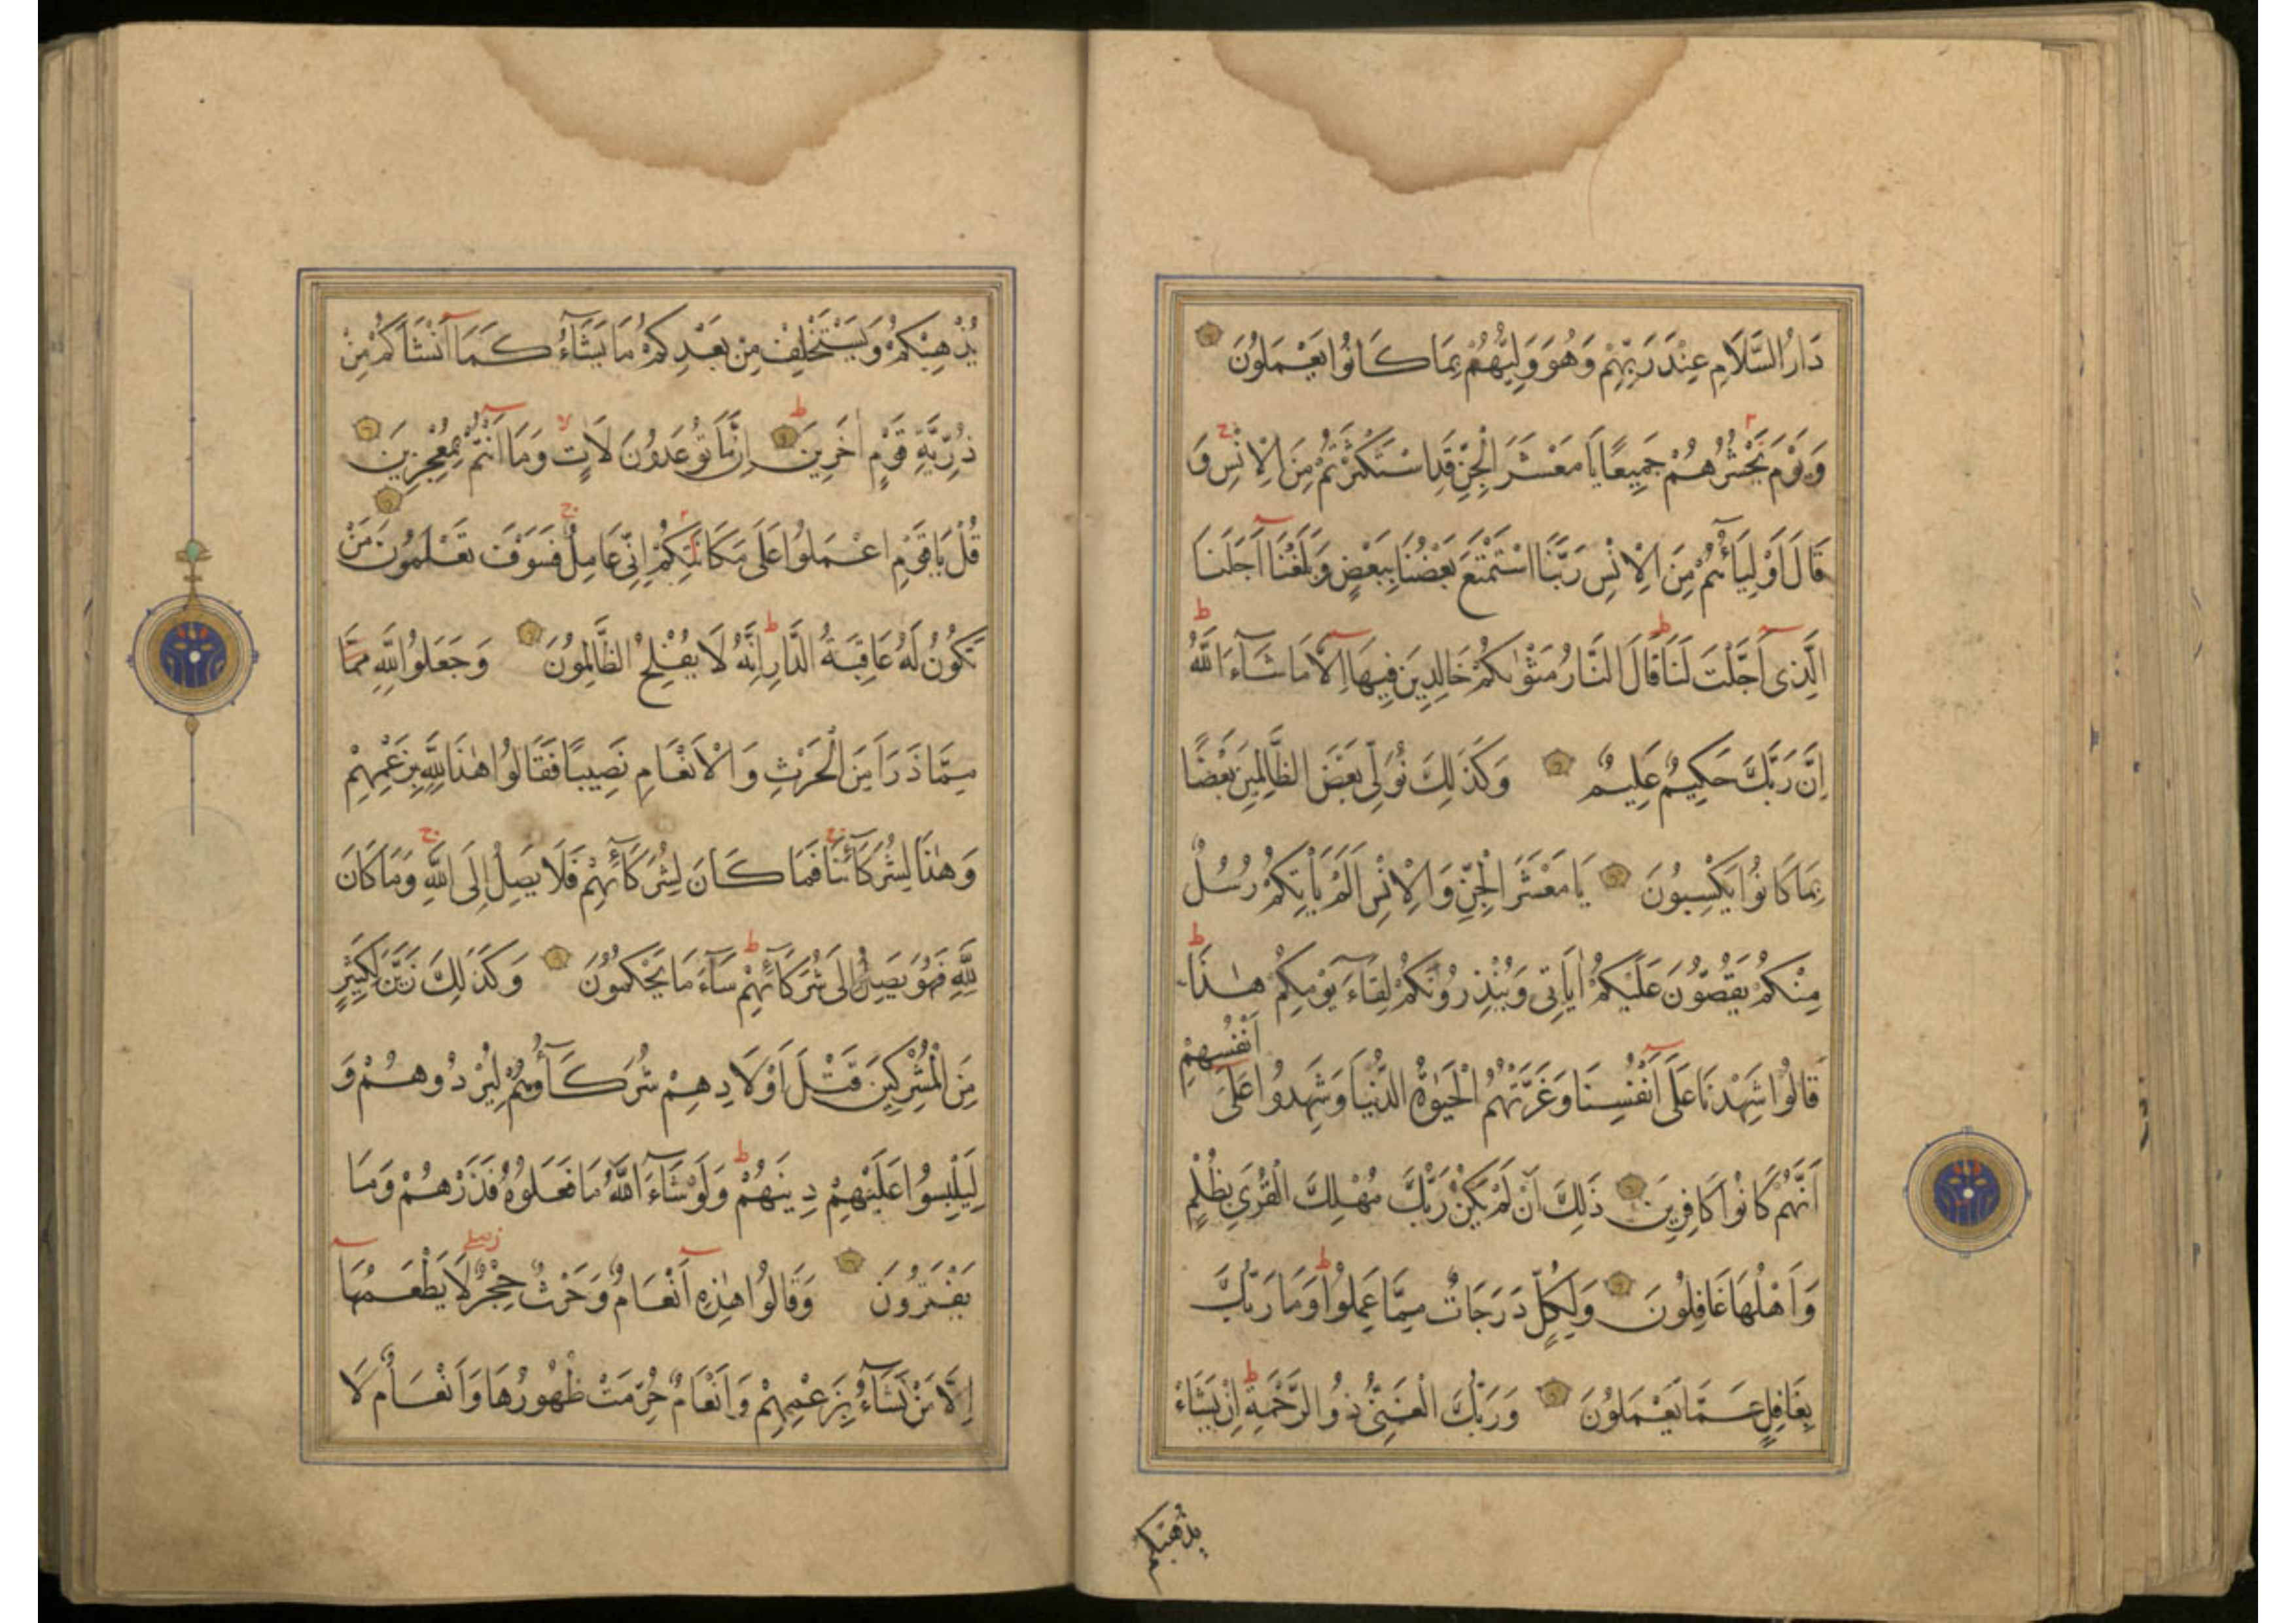 دَارُ السَّلَامِ عِنْدَ رَبِّهِمْ وَهُوَ وَلِيُّهُمْ بِمَا كَانُوا يَعْمَلُونَ
وَيَوْمَ نَحْشُرُهُمْ جَمِيعًا يَا مَعْشَرَ الْجِنِّ قَدِ اسْتَكْثَرْتُمْ مِنَ الْاِنْسِ وَ
قَالَ اَوْلِيَاؤُهُمْ مِنَ الْاِنْسِ رَبَّنَا اسْتَمْتَعَ بَعْضُنَا بِبَعْضٍ وَبَلَغْنَا اَجَلَنَا
الَّذِى اَجَّلْتَ لَنَا قَالَ النَّارُ مَثْوٰيكُمْ خَالِدِينَ فِيهَا اِلَّا مَا شَاءَ اللّٰهُ
اِنَّ رَبَّكَ حَكِيمٌ عَلِيمٌ وَكَذٰلِكَ نُوَلِّى بَعْضَ الظَّالِمِينَ بَعْضًا
بِمَا كَانُوا يَكْسِبُونَ يَا مَعْشَرَ الْجِنِّ وَالْاِنْسِ اَلَمْ يَأْتِكُمْ رُسُلٌ
مِنْكُمْ يَقُصُّونَ عَلَيْكُمْ اٰيَاتِى وَيُنْذِرُونَكُمْ لِقَاءَ يَوْمِكُمْ هٰذَا
قَالُوا شَهِدْنَا عَلَى اَنْفُسِنَا وَغَرَّتْهُمُ الْحَيٰوةُ الدُّنْيَا وَشَهِدُوا عَلَى اَنْفُسِهِمْ
اَنَّهُمْ كَانُوا كَافِرِينَ ذٰلِكَ اَنْ لَمْ يَكُنْ رَبُّكَ مُهْلِكَ الْقُرٰى بِظُلْمٍ
وَاَهْلُهَا غَافِلُونَ وَلِكُلٍّ دَرَجَاتٌ مِمَّا عَمِلُوا وَمَا رَبُّكَ
بِغَافِلٍ عَمَّا يَعْمَلُونَ وَرَبُّكَ الْغَنِىُّ ذُو الرَّحْمَةِ اِنْ يَشَاءْ
يُذْهِبْكُمْ
يُذْهِبْكُمْ وَيَسْتَخْلِفْ مِنْ بَعْدِكُمْ مَا يَشَاءُ كَمَا اَنْشَاَكُمْ مِنْ
ذُرِّيَّةِ قَوْمٍ اٰخَرِينَ اِنَّمَا تُوعَدُونَ لَاٰتٍ وَمَا اَنْتُمْ بِمُعْجِزِينَ
قُلْ يَا قَوْمِ اعْمَلُوا عَلَى مَكَانَتِكُمْ اِنِّى عَامِلٌ فَسَوْفَ تَعْلَمُونَ مَنْ
تَكُونُ لَهُ عَاقِبَةُ الدَّارِ اِنَّهُ لَا يُفْلِحُ الظَّالِمُونَ وَجَعَلُوا لِلّٰهِ مِمَّا
مِمَّا ذَرَاَ مِنَ الْحَرْثِ وَالْاَنْعَامِ نَصِيبًا فَقَالُوا هٰذَا لِلّٰهِ بِزَعْمِهِمْ
وَهٰذَا لِشُرَكَائِنَا فَمَا كَانَ لِشُرَكَائِهِمْ فَلَا يَصِلُ اِلَى اللّٰهِ وَمَا كَانَ
لِلّٰهِ فَهُوَ يَصِلُ اِلَى شُرَكَائِهِمْ سَاءَ مَا يَحْكُمُونَ وَكَذٰلِكَ زَيَّنَ لِكَثِيرٍ
مِنَ الْمُشْرِكِينَ قَتْلَ اَوْلَادِهِمْ شُرَكَاؤُهُمْ لِيُرْدُوهُمْ وَ
لِيَلْبِسُوا عَلَيْهِمْ دِينَهُمْ وَلَوْ شَاءَ اللّٰهُ مَا فَعَلُوهُ فَذَرْهُمْ وَمَا
يَفْتَرُونَ وَقَالُوا هٰذِهِ اَنْعَامٌ وَحَرْثٌ حِجْرٌ لَا يَطْعَمُهَا
اِلَّا مَنْ نَشَاءُ بِزَعْمِهِمْ وَاَنْعَامٌ حُرِّمَتْ ظُهُورُهَا وَاَنْعَامٌ لَا